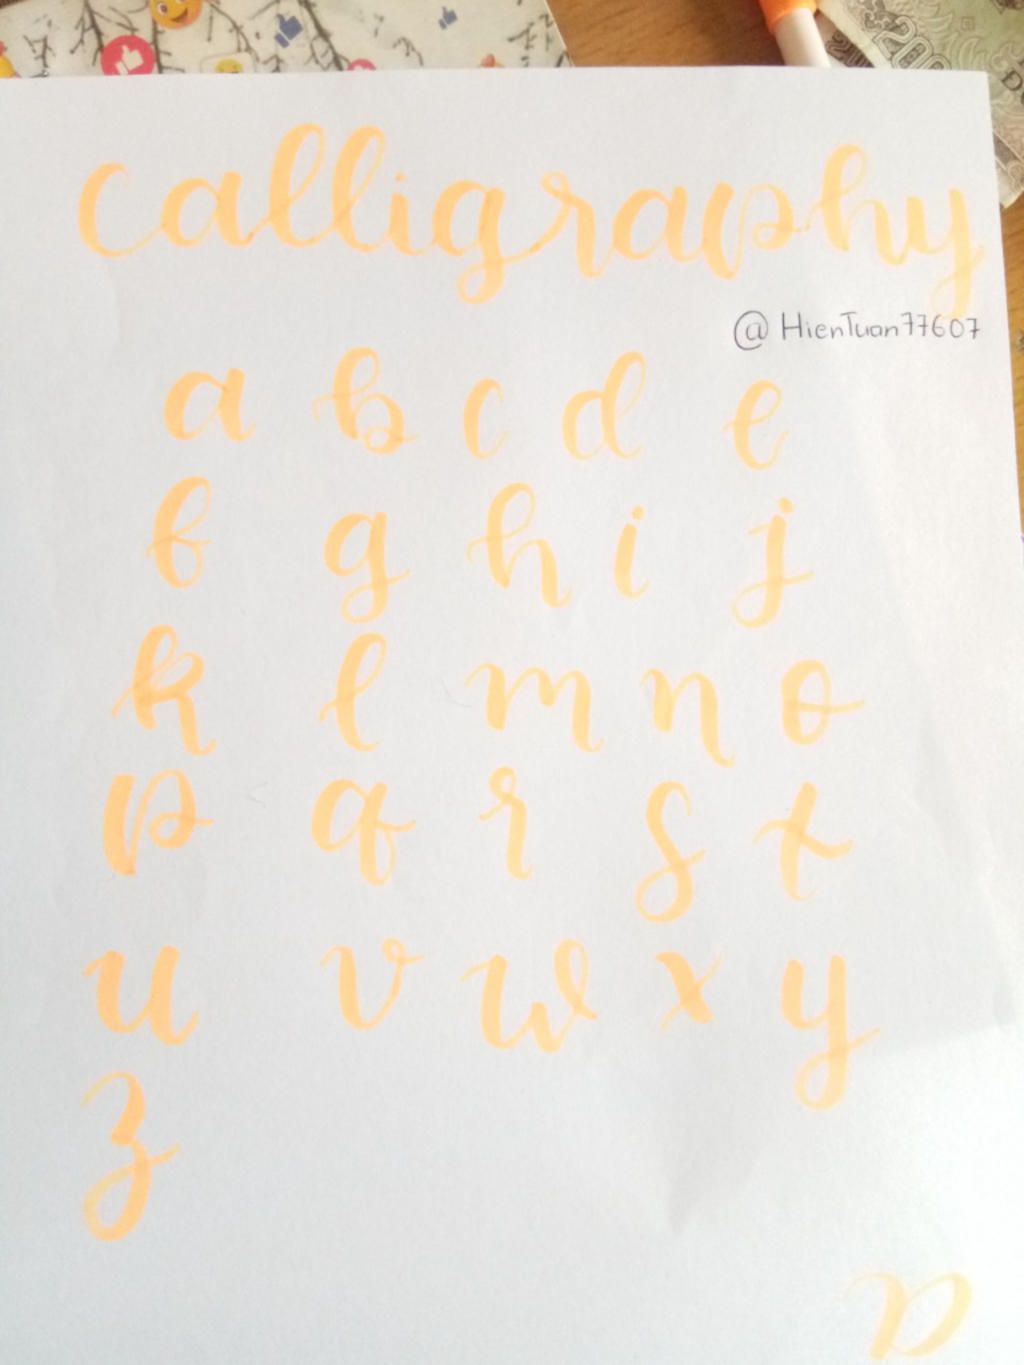 200
Calligraphy
@HienTuan77607
a b c d e
f g h i j
k l m n o
p q r s t
u v w x y
z